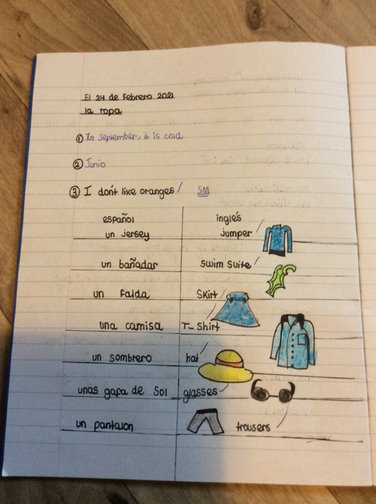 El 24 de febrero 2021
la ropa
① In September, it is cold
② Junio
③ I don't like oranges / SM
español ingles
un Jersey Jumper
un bañadar swim suite
un falda skirt
una camisa T-shirt
un sombrero hat
unas gapa de sol glasses
un pantalon trousers